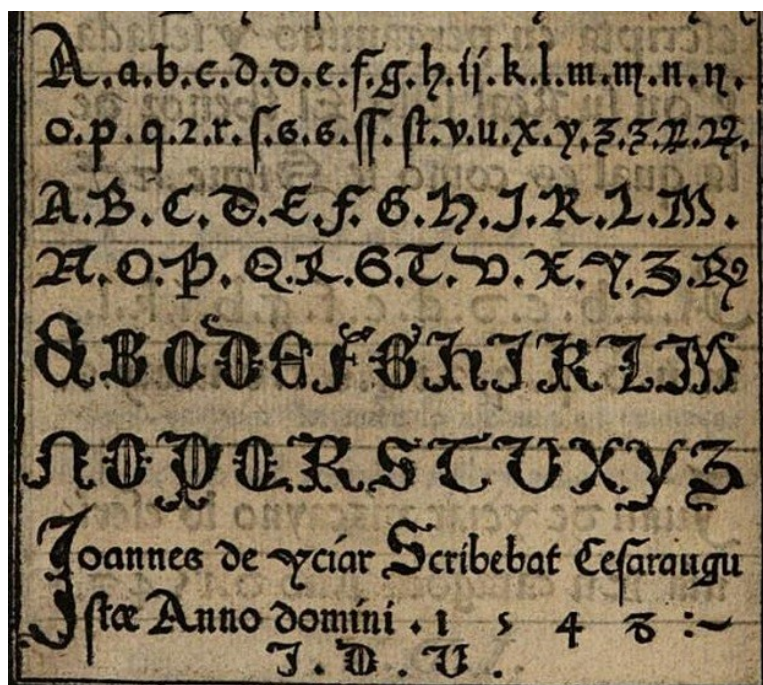 A.a.b.c.d.d.e.f.g.h.ij.k.l.m.m.n.n.
o.p.q.ꝛ.r.ſ.s.s.ſſ.ſt.v.u.x.y.z.z.
A.B.C.D.E.F.G.H.I.K.L.M.
N.O.P.Q.R.S.T.V.X.Y.Z.
A B C D E F G H I K L M
N O P Q R S T U X Y Z
Joannes de yciar Scribebat Ceſaraugu
ſtæ Anno domini . 1 5 4 8 :~
J . D . V .